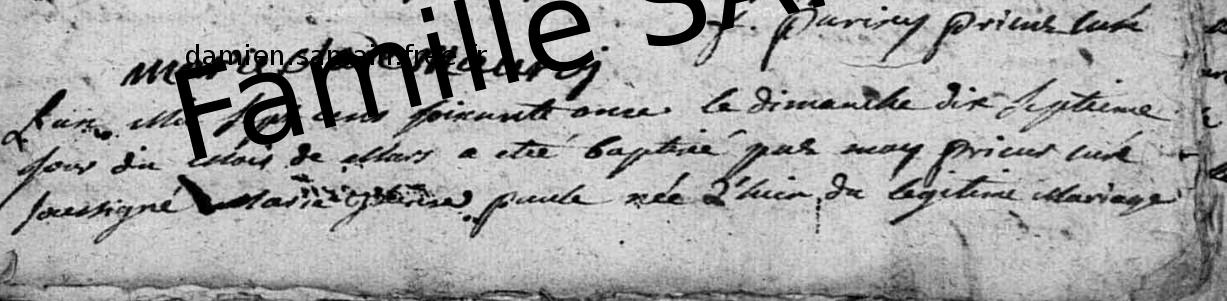 prieur curé
damien.sarrain.free.fr
Famille SA
L'an mil sept cens soixante onze le dimanche dix septieme
jour du Mois de Mars a eté baptisé par moy prieur curé
soussigné Marie paule née d'huir du legitime Mariage